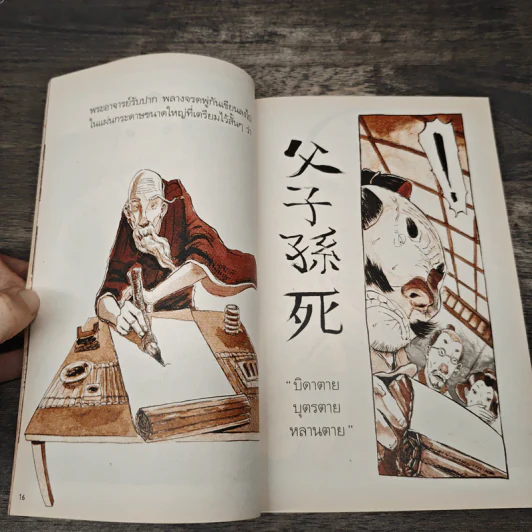 พระอาจารย์รับปาก พลางจรดพู่กันเขียนลง
ในแผ่นกระดาษขนาดใหญ่ที่เตรียมไว้สั้นๆ ว่า
父子孫死
!
"บิดาตาย
บุตรตาย
หลานตาย"
16